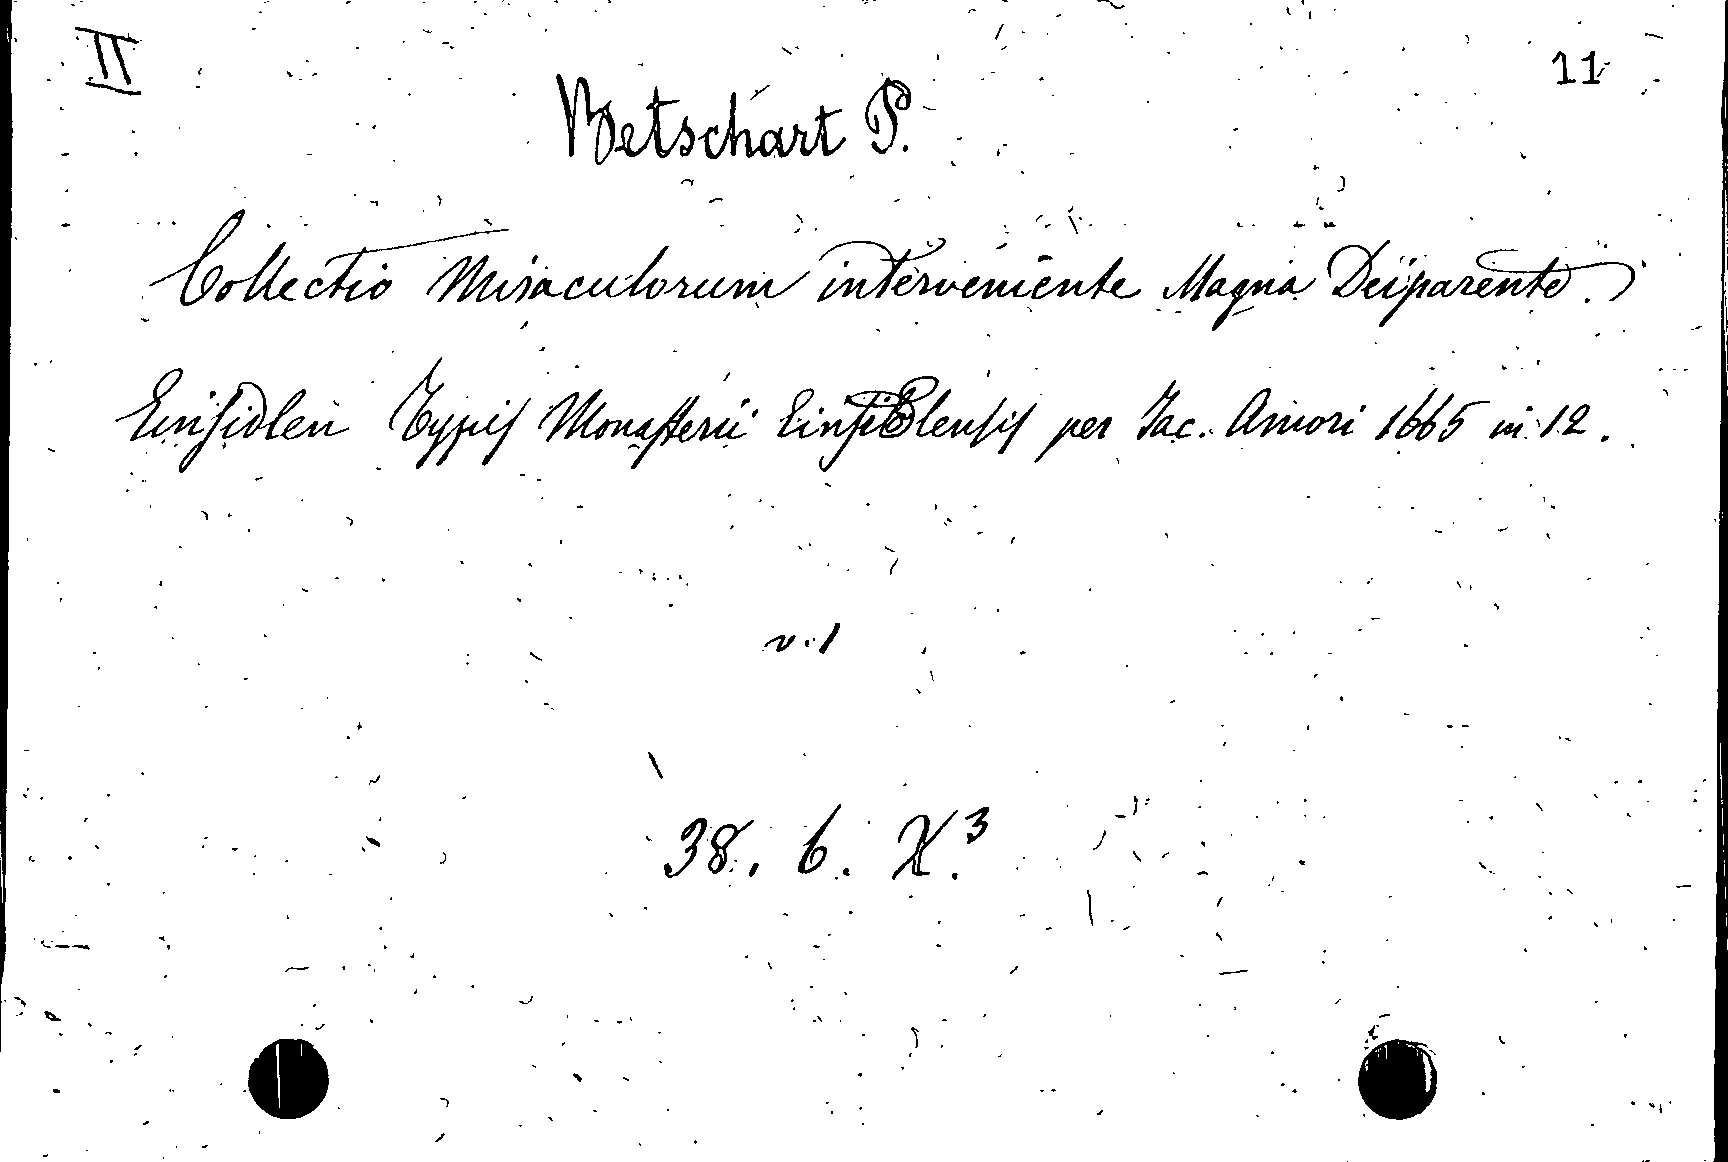 II
11
Betschart P.
Collectio Miraculorum interveniente Magna Deiparente.
Einsidlen Typis Monasterii Einsidlensis per Jac. Amori 1665 in 12.
v. 1
38. 6. X.³